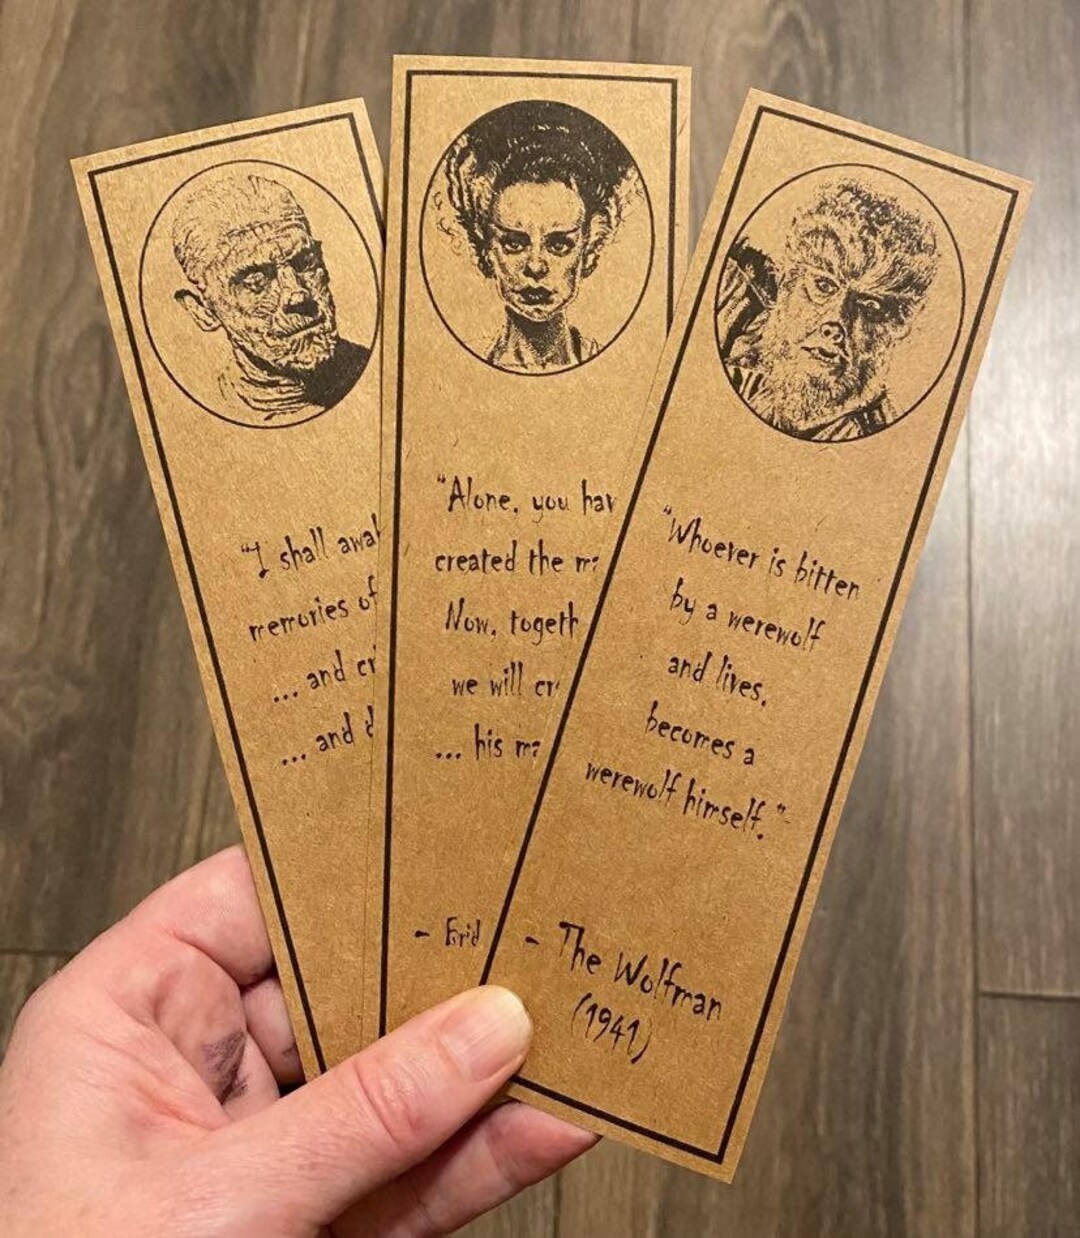 "I shall awak
memories of
... and cr
... and d
"Alone, you hav
created the m
Now, togeth
we will cr
... his ma
- Brid
"Whoever is bitten
by a werewolf
and lives,
becomes a
werewolf himself."
- The Wolfman
(1941)